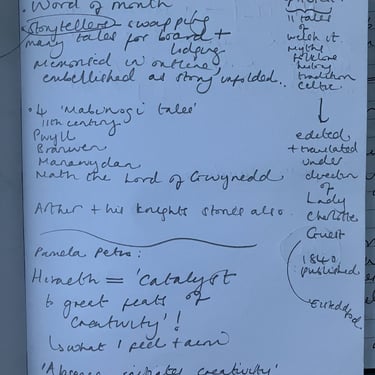 · Word of mouth
Storytellers swapping
many tales for board +
lodging
Memorised in outline
embellished as story unfolded..
· 4 'Mabinogi tales'
11th century
Pwyll
Branwen
Manawydan
Math the Lord of Gwynedd
Arthur + his knights stories also.
Pamela Petro:
Hiraeth = 'Catalyst
to great feats of
creativity'!
↳ what I feel + am
'Absence initiates creativity'
11 tales
of
welsh
myths
folklore
tradition
Celtic
↓
edited
+ translated
under
direction
of
Lady
Charlotte
Guest
1840
published